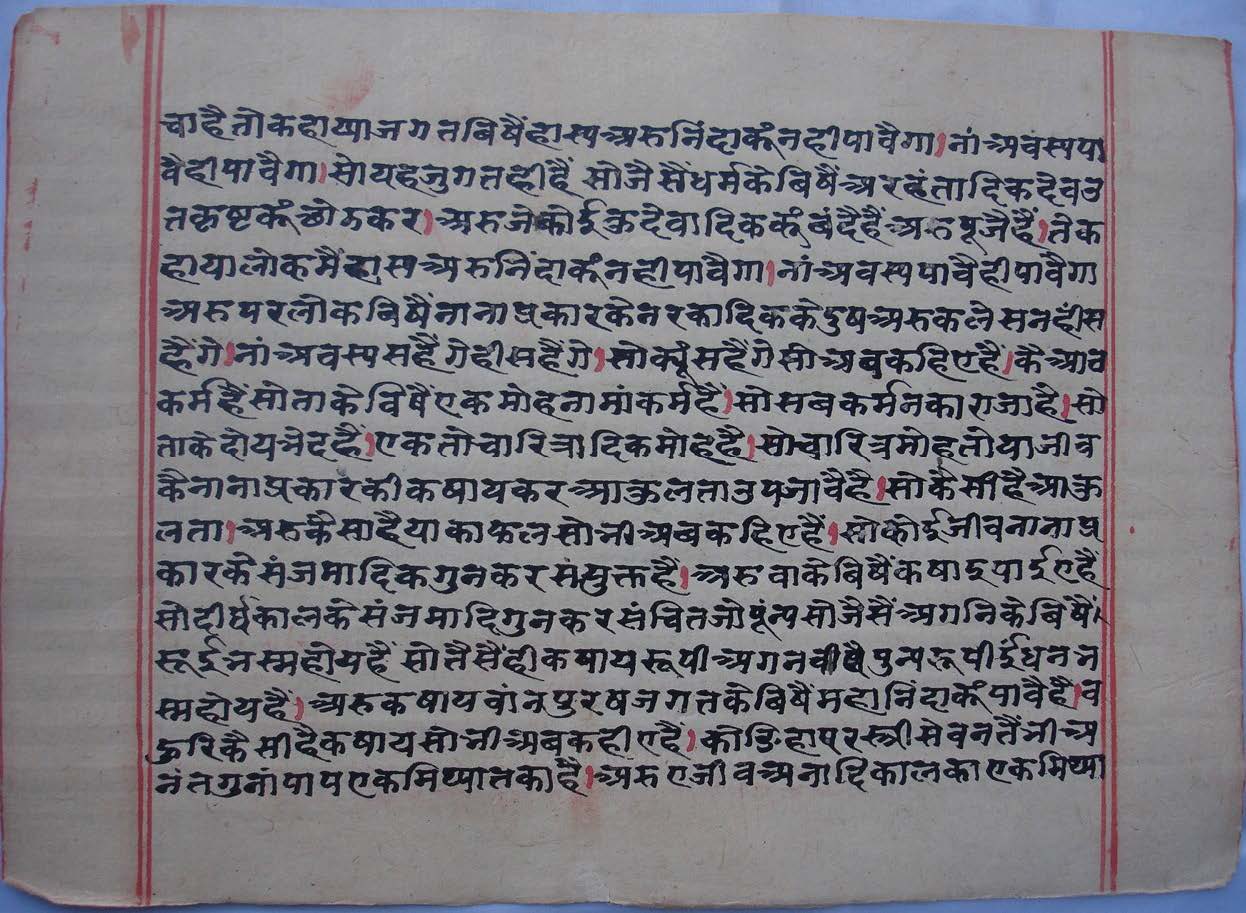 चाहैतोकहायाजगतबिषैंहास्यअरुनिंदाकूंनहीपावैगा।नांअवस्यपा
वैहीपावैगा।सोयहजुगतहीहैं सोजैसैंधर्मकेबिषैंअरहंतादिकदेवउ
तकृष्टकूंछोठकर।अरुजेकोईकुदेवादिककूंबंदैहैंअरुपूजैहैं।तेक
हायालोकमैंहास्यअरुनिंदाकूंनहीपावैगा।नांअवस्यपावैहीपावैगा
अरुपरलोकबिषैंनानाप्रकारकेनरकादिककेदुषअरुकलेसनहींस
हैंगे।नांअवस्यसहैंगेहीसहैंगे।सोक्यूंसहैंगेसोअबकहिएहैं।कैआठ
कर्महैंसोताकेविषैंएकमोहनामांकर्महैं।सोसबकर्मनकाराजाहै।सो
ताकेदोयभेदहैं।एकतोचारित्रादिकमोहहै।सोचारित्रमोहतोयाजीव
कैनानाप्रकारकीकषायकरआकुलताउपजावैहै।सोकैसीहैआकु
लता।अरुकैसाहैयाकाफलसोभीअबकहिएहैं।सोकोईजीवनानाप्र
कारकेसंजमादिकगुनकरसंयुक्तहैं।अरुवाकेबिषैंकषाइपाईएहैं
सोदीर्घकालकेसंजमादिगुनकरसंचितजोपूंन्यसोजैसैंअगनिकेबिषैं।
रूईभस्महोयहैं सोतैसैंहीकषायरूपीअगनबीषैपुन्यरूपीईंधनभ
स्महोयहैं।अरुकषायवांनपुरषजगतकेबिषैंमहानिंदाकूंपावैहैं।ब
हुरिकैसीहैकषायसोभीअबकहीएहैं।कोडिहापरस्त्रीसेवनतैंभीअ
नंतगुनांपापएकमिथ्यातकाहै।अरुएजीवअनादिकालकाएकमिथ्या